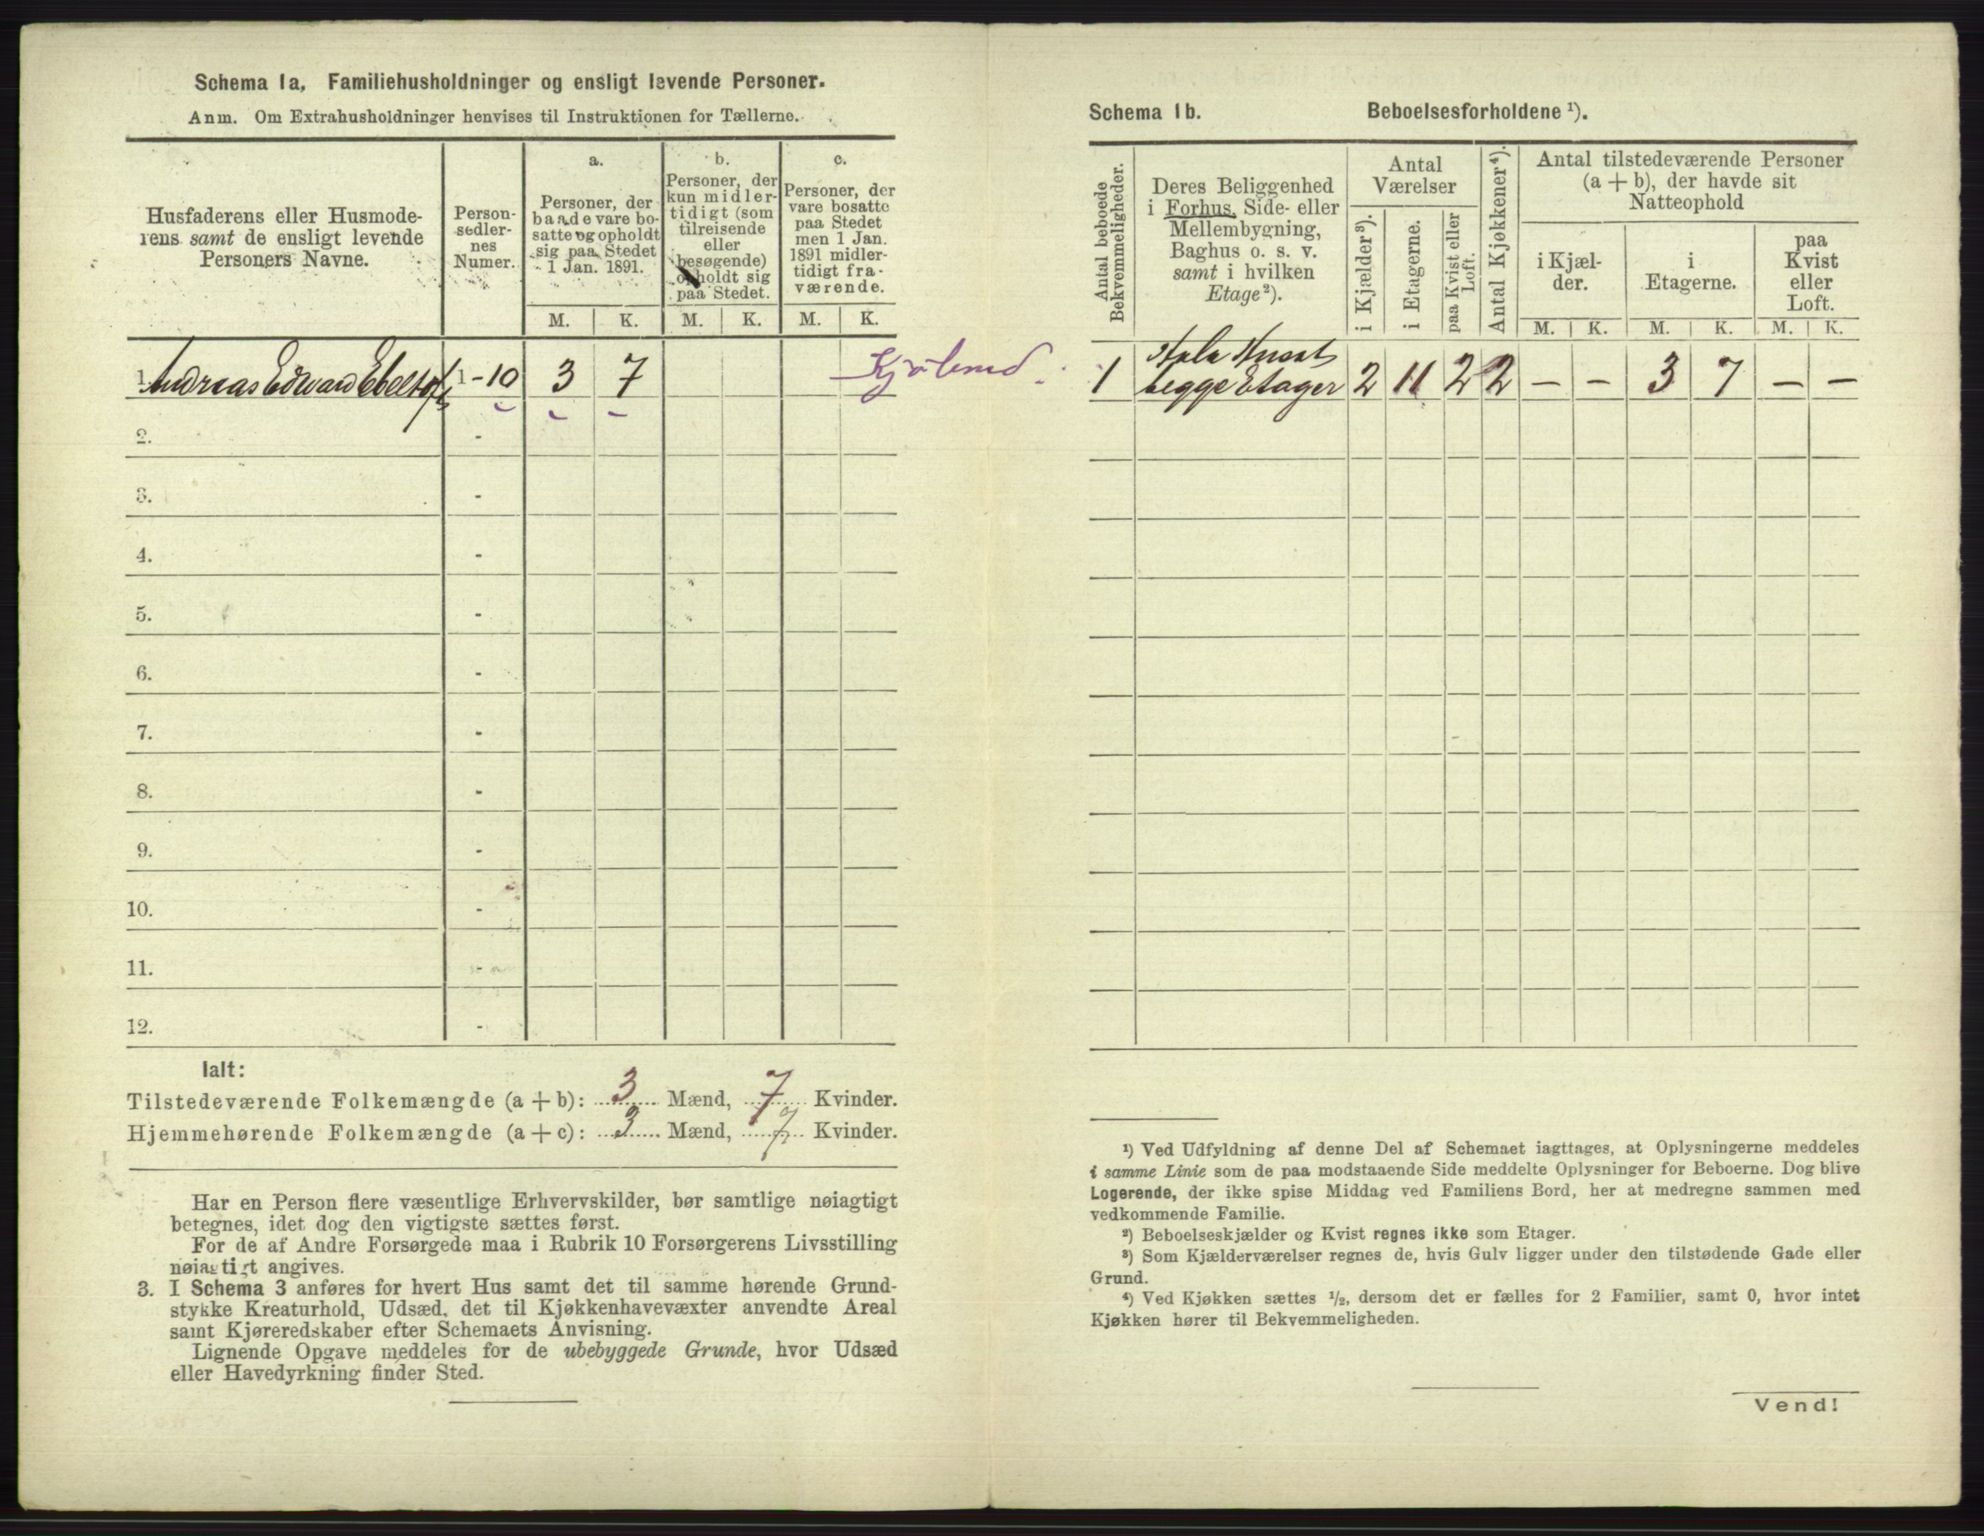 Schema 1a, Familiehusholdninger og ensligt levende Personer.
Anm. Om Extrahusholdninger henvises til Instruktionen for Tællerne.
Husfaderens eller Husmode-
rens samt de ensligt levende
Personers Navne.
Person-
sedler-
nes
Numer.
a.
Personer, der
baade vare bo-
satte og opholdt
sig paa Stedet
1 Jan. 1891.
b.
Personer, der
kun midler-
tidigt (som
tilreisende
eller
besøgende)
opholdt sig
paa Stedet.
c.
Personer, der
vare bosatte
paa Stedet
men 1 Jan.
1891 midler-
tidigt fra-
værende.
M. K. M. K. M. K.
1. Andreas Edward Ebeltoft 1-10 3 7
2. -
3. -
4. -
5. -
6. -
7. -
8. -
9. -
10. -
11. -
12. -
Ialt:
Tilstedeværende Folkemængde (a + b): 3 Mænd, 7 Kvinder.
Hjemmehørende Folkemængde (a + c): 3 Mænd, 7 Kvinder.
Har en Person flere væsentlige Erhvervskilder, bør samtlige nøiagtigt
betegnes, idet dog den vigtigste sættes først.
For de af Andre Forsørgede maa i Rubrik 10 Forsørgerens Livsstilling
nøiagtigt angives.
3. I Schema 3 anføres for hvert Hus samt det til samme hørende Grund-
stykke Kreaturhold, Udsæd, det til Kjøkkenhavevæxter anvendte Areal
samt Kjøreredskaber efter Schemaets Anvisning.
Lignende Opgave meddeles for de ubebyggede Grunde, hvor Udsæd
eller Havedyrkning finder Sted.
Schema 1b. Beboelsesforholdene ¹).
Antal beboede
Bekvemmeligheder.
Deres Beliggenhed
i Forhus, Side- eller
Mellembygning,
Baghus o. s. v.
samt i hvilken
Etage ²).
Antal
Værelser
i Kjælder ³).
i Etagerne.
paa Kvist eller
Loft.
Antal Kjøkkener ⁴).
Antal tilstedeværende Personer
(a + b), der havde sit
Natteophold
i Kjæl-
der.
i
Etagerne.
paa
Kvist
eller
Loft.
M. K. M. K. M. K.
1 Hele Huset
begge Etager 2 11 2 2 — — 3 7 — —
¹) Ved Udfyldning af denne Del af Schemaet iagttages, at Oplysningerne meddeles
i samme Linie som de paa modstaaende Side meddelte Oplysninger for Beboerne. Dog blive
Logerende, der ikke spise Middag ved Familiens Bord, her at medregne sammen med
vedkommende Familie.
²) Beboelseskjælder og Kvist regnes ikke som Etager.
³) Som Kjælderværelser regnes de, hvis Gulv ligger under den tilstødende Gade eller
Grund.
⁴) Ved Kjøkken sættes ½, dersom det er fælles for 2 Familier, samt 0, hvor intet
Kjøkken hører til Bekvemmeligheden.
Vend!